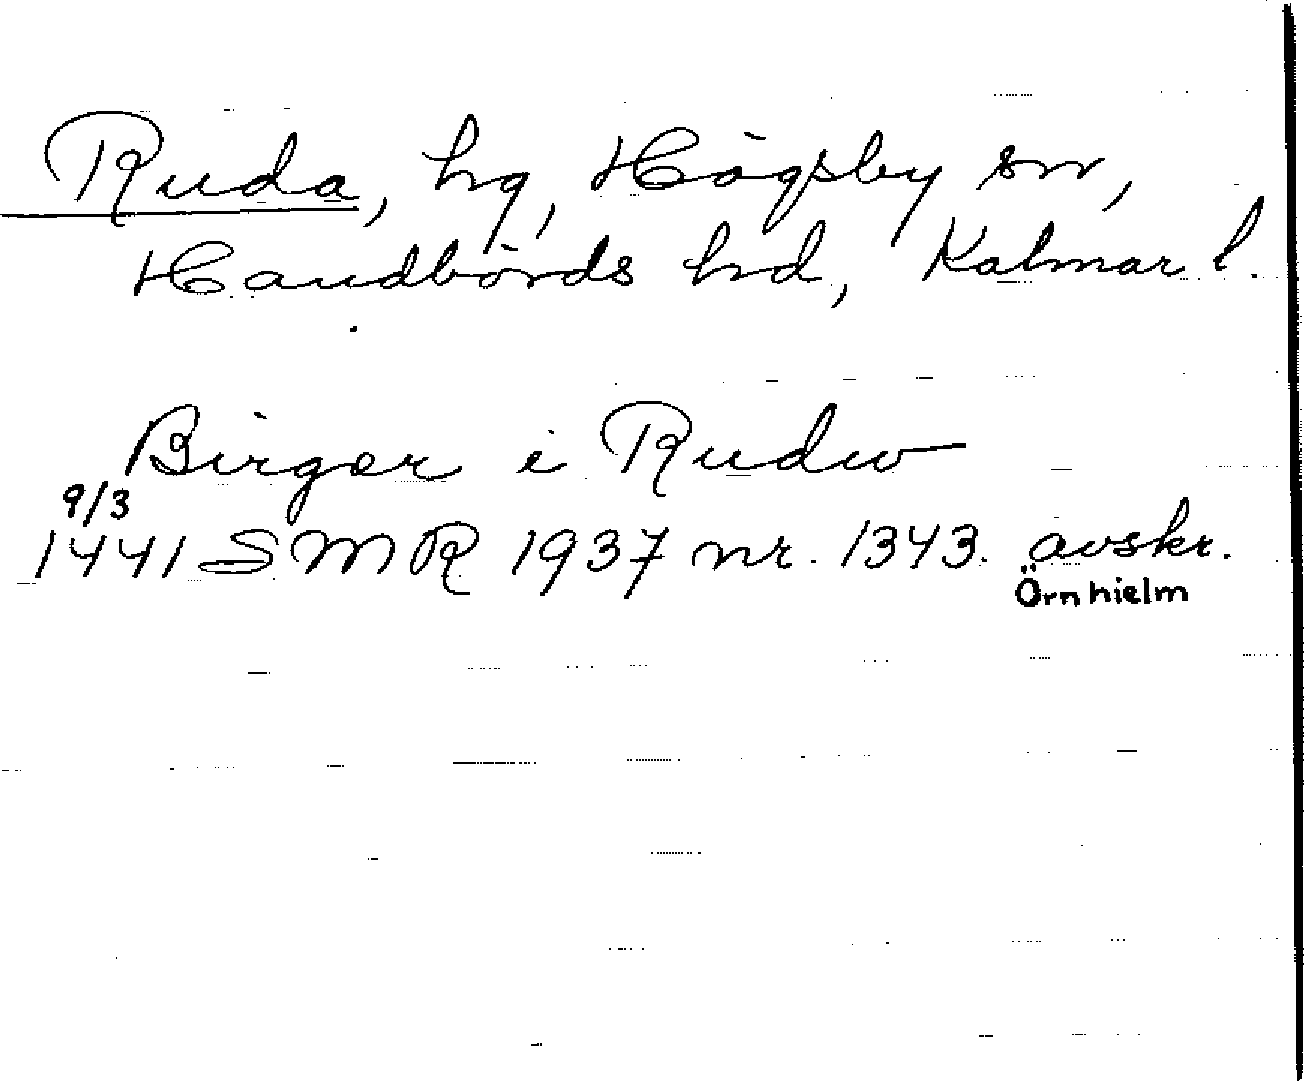 Ruda, hg, Högsby sn,
Handbörds hd, Kalmar l.
Birger i Rudw
9/3
1441 SMR 1937 nr. 1343. avskr.
Örnhielm